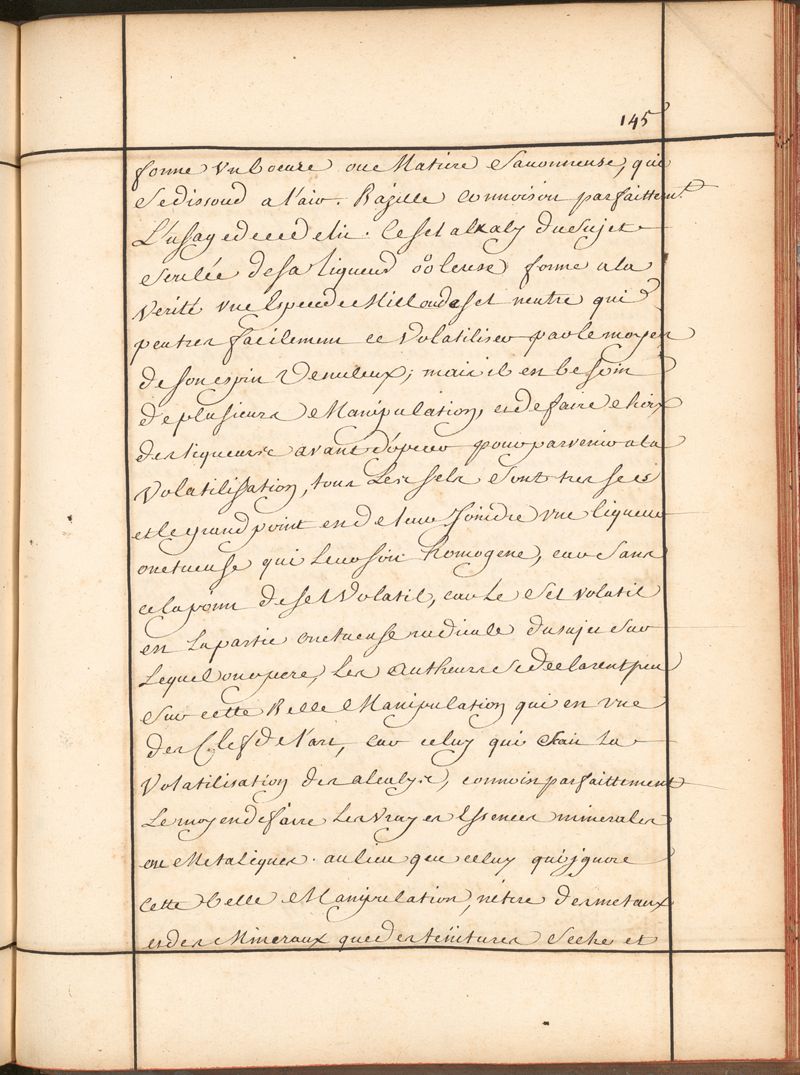 145
forme vn boeure ou Matiere Sauonneuse, qui
Se dissoud a l'air. Bazille connoison parfaittemt.
L'usage de ce delit. le Sel alkaly du Sujet
Seulée de sa liqueur oóleuse forme a la
Verité vne Espece de Sel neutre qui
peu tres facilement ce Volatiliser par le moyen
de son esprit Venuleux; mais il en besoin
de plusieurs Manipulation, et de faire choix
des liqueurs avant d'operer pour parvenir a la
Volatilisation, tous Les sels Sont tres secs
et le grand point en de leur Joindre vne liqueur
onctueuse qui Leur soit homogene, car Sans
cela point de sel Volatil, car Le Sel volatil
en La partie onctueuse radicale du sujet Sur
Lequel on opere, Les Autheurs Se declarent peu
Sur cette Belle Manipulation qui en vne
des Clef de l'art, car celuy qui Scait La
Volatilisation des alcalys, connoit parfaittement
Le moyen de faire Les Vrayes Essences minerales
ou Metaliques. au lieu que celuy qui jgnore
Cette belle Manipulation, n'tire des metaux
et des Mineraux que des teintures Seche et